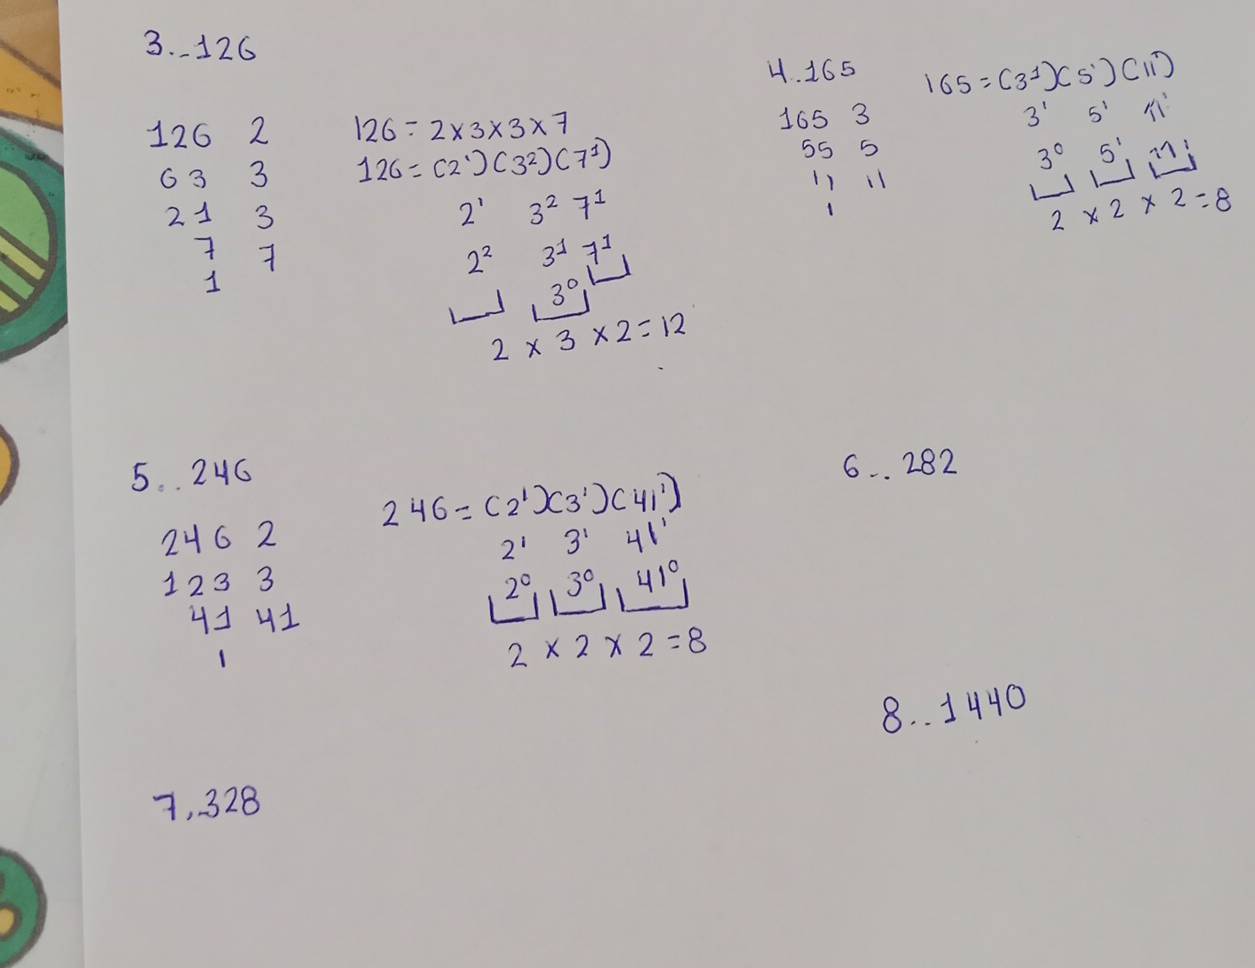 3.-126
126 2
63 3
21 3
7 7
1
126 = 2x3x3x7
126 = (2¹)(3²)(7¹)
2¹ 3² 7¹
2² 3¹ 7¹
3⁰
2 x 3 x 2 = 12
4..165
165 3
55 5
11 11
1
165 = (3¹)(5¹)(11¹)
3¹ 5¹ 11¹
3⁰ 5¹ 11¹
2 x 2 x 2 = 8
5..246
246 2
123 3
41 41
1
246 = (2¹)(3¹)(41¹)
2¹ 3¹ 41¹
2⁰ 3⁰ 41⁰
2 x 2 x 2 = 8
6-..282
7,.328
8..1440